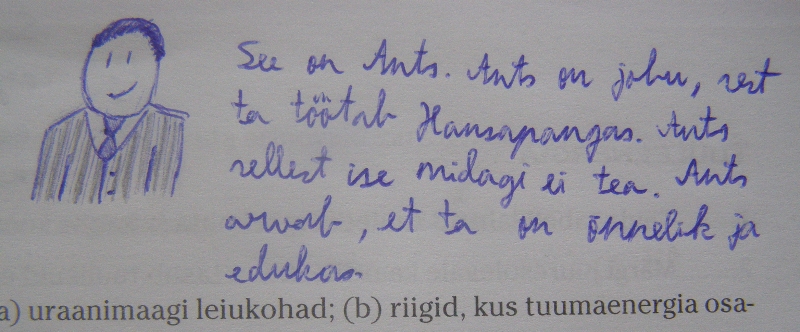 See on Ants. Ants on jobu, sest
ta töötab Hansapangas. Ants
sellest ise midagi ei tea. Ants
arvab, et ta on õnnelik ja
edukas.
a) uraanimaagi leiukohad; (b) riigid, kus tuumaenergia osa-